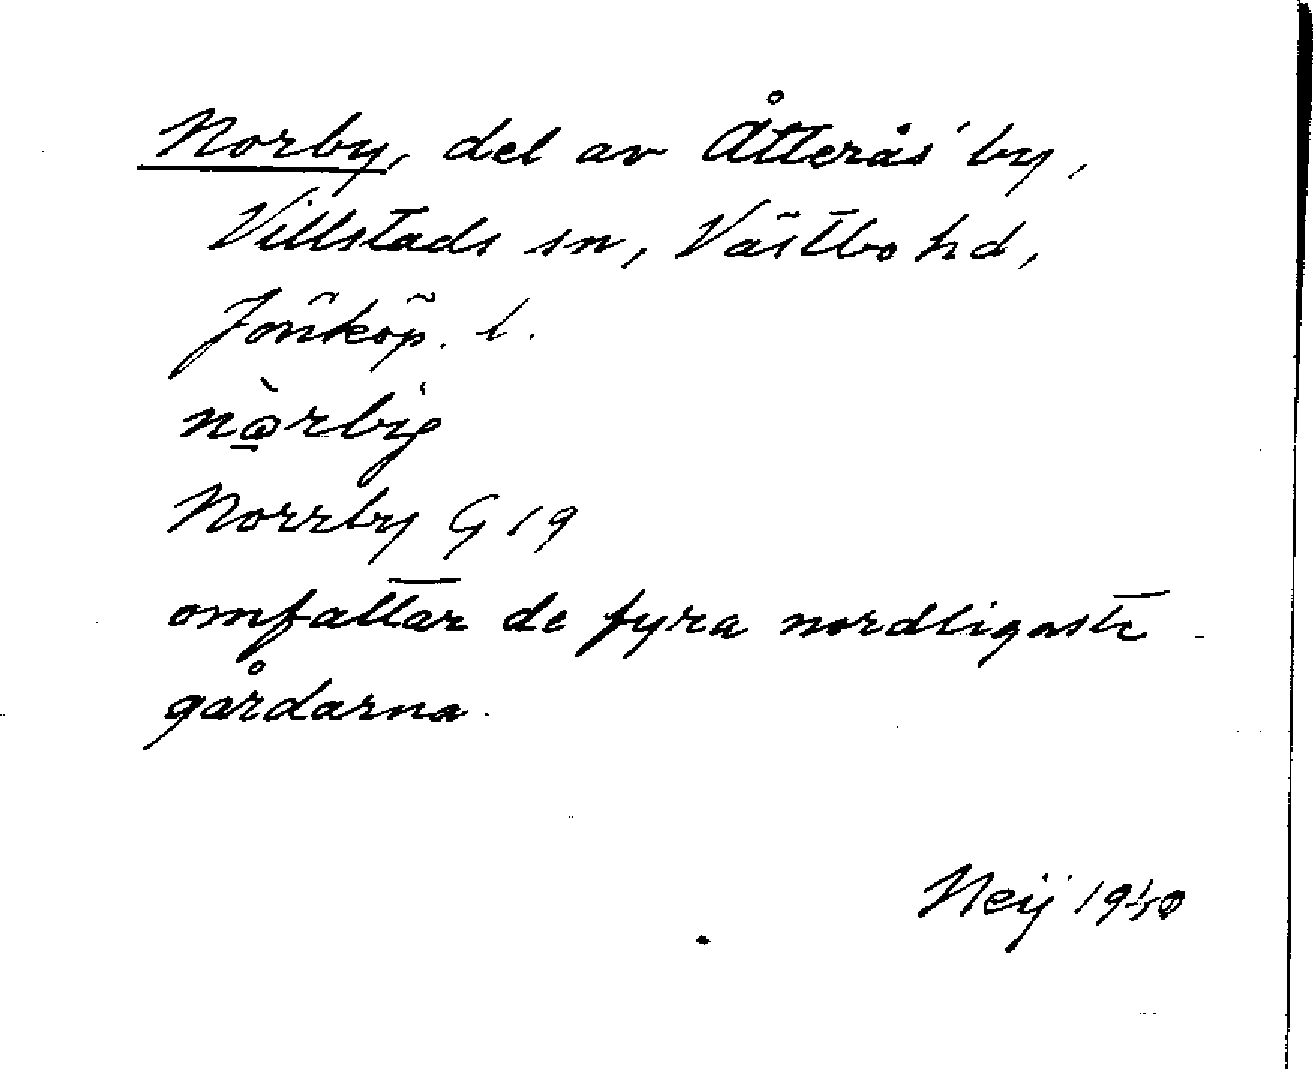 Norby, del av Åtterås by,
Villstads sn, Västbo hd,
Jönköp. l.
Norrby G 19
omfattar de fyra nordligaste
gårdarna.
Neij